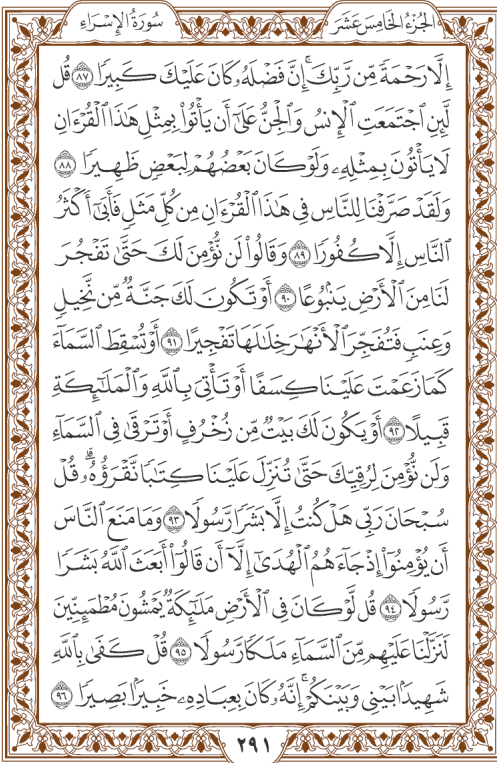 الجُزْءُ الخَامِسَ عَشَرَ
سُورَةُ الإِسْرَاءِ
إِلَّا رَحْمَةً مِّن رَّبِّكَۚ إِنَّ فَضْلَهُۥ كَانَ عَلَيْكَ كَبِيرًا ٨٧ قُل
لَّئِنِ ٱجْتَمَعَتِ ٱلْإِنسُ وَٱلْجِنُّ عَلَىٰٓ أَن يَأْتُوا۟ بِمِثْلِ هَٰذَا ٱلْقُرْءَانِ
لَا يَأْتُونَ بِمِثْلِهِۦ وَلَوْ كَانَ بَعْضُهُمْ لِبَعْضٍ ظَهِيرًا ٨٨
وَلَقَدْ صَرَّفْنَا لِلنَّاسِ فِى هَٰذَا ٱلْقُرْءَانِ مِن كُلِّ مَثَلٍ فَأَبَىٰٓ أَكْثَرُ
ٱلنَّاسِ إِلَّا كُفُورًا ٨٩ وَقَالُوا۟ لَن نُّؤْمِنَ لَكَ حَتَّىٰ تَفْجُرَ
لَنَا مِنَ ٱلْأَرْضِ يَنۢبُوعًا ٩٠ أَوْ تَكُونَ لَكَ جَنَّةٌ مِّن نَّخِيلٍ
وَعِنَبٍ فَتُفَجِّرَ ٱلْأَنْهَٰرَ خِلَٰلَهَا تَفْجِيرًا ٩١ أَوْ تُسْقِطَ ٱلسَّمَآءَ
كَمَا زَعَمْتَ عَلَيْنَا كِسَفًا أَوْ تَأْتِىَ بِٱللَّهِ وَٱلْمَلَٰٓئِكَةِ
قَبِيلًا ٩٢ أَوْ يَكُونَ لَكَ بَيْتٌ مِّن زُخْرُفٍ أَوْ تَرْقَىٰ فِى ٱلسَّمَآءِ
وَلَن نُّؤْمِنَ لِرُقِيِّكَ حَتَّىٰ تُنَزِّلَ عَلَيْنَا كِتَٰبًا نَّقْرَؤُهُۥۗ قُلْ
سُبْحَانَ رَبِّى هَلْ كُنتُ إِلَّا بَشَرًا رَّسُولًا ٩٣ وَمَا مَنَعَ ٱلنَّاسَ
أَن يُؤْمِنُوٓا۟ إِذْ جَآءَهُمُ ٱلْهُدَىٰٓ إِلَّآ أَن قَالُوٓا۟ أَبَعَثَ ٱللَّهُ بَشَرًا
رَّسُولًا ٩٤ قُل لَّوْ كَانَ فِى ٱلْأَرْضِ مَلَٰٓئِكَةٌ يَمْشُونَ مُطْمَئِنِّينَ
لَنَزَّلْنَا عَلَيْهِم مِّنَ ٱلسَّمَآءِ مَلَكًا رَّسُولًا ٩٥ قُلْ كَفَىٰ بِٱللَّهِ
شَهِيدًۢا بَيْنِى وَبَيْنَكُمْۚ إِنَّهُۥ كَانَ بِعِبَادِهِۦ خَبِيرًۢا بَصِيرًا ٩٦
٢٩١